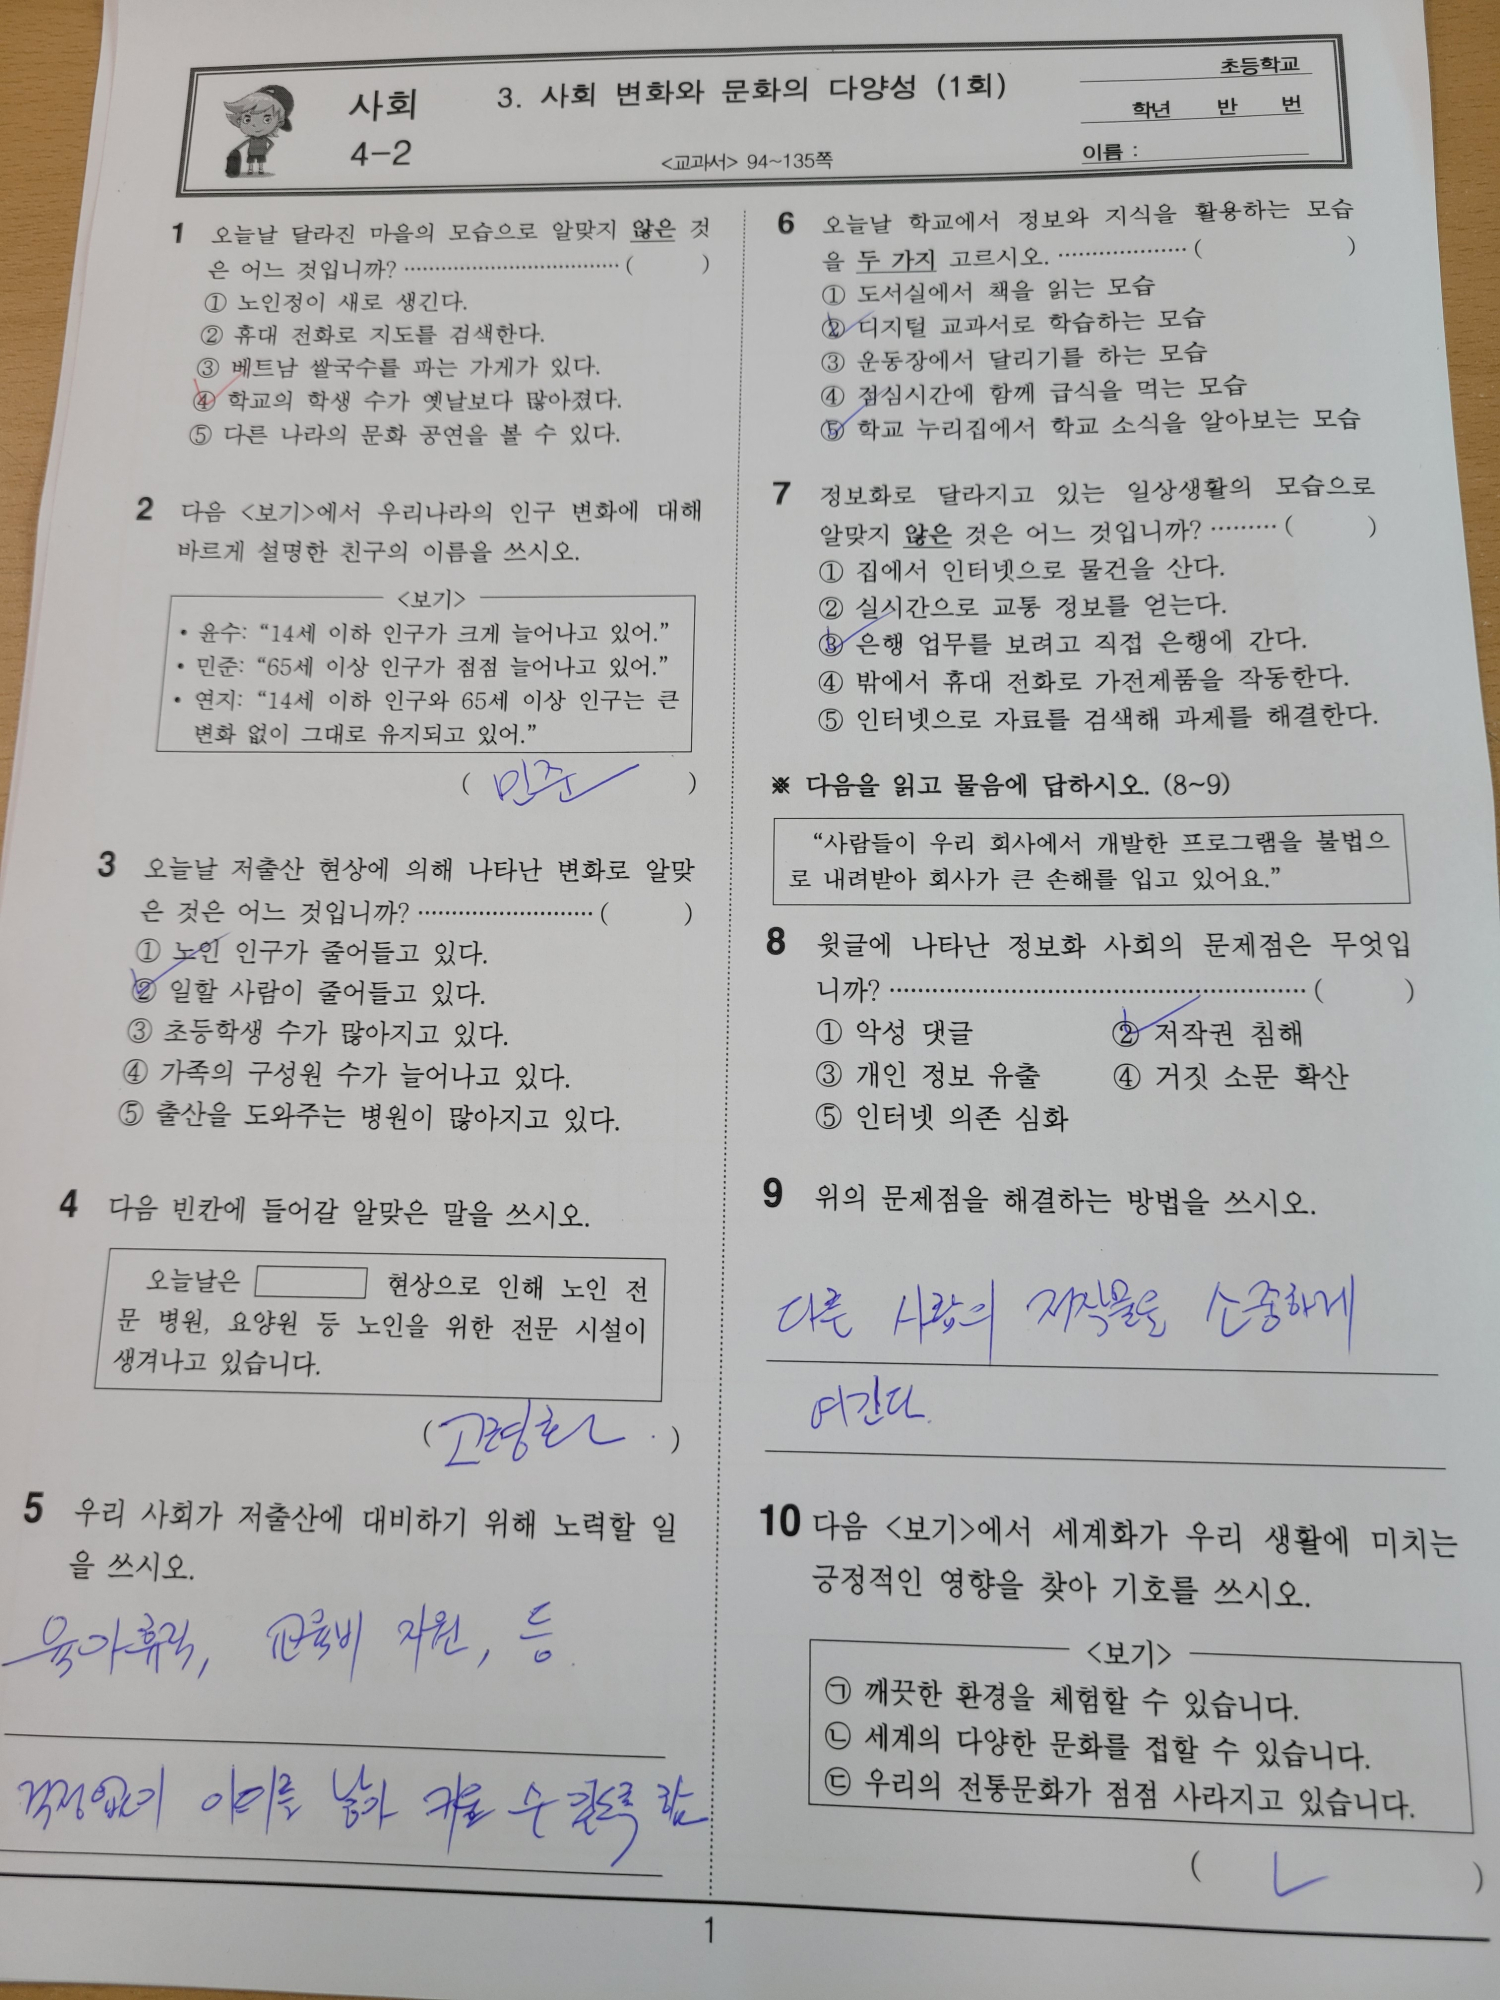 사회
4-2
3. 사회 변화와 문화의 다양성 (1회)
<교과서> 94~135쪽
초등학교
학년 반 번
이름 :
1 오늘날 달라진 마을의 모습으로 알맞지 않은 것
은 어느 것입니까? ( )
① 노인정이 새로 생긴다.
② 휴대 전화로 지도를 검색한다.
③ 베트남 쌀국수를 파는 가게가 있다.
④ 학교의 학생 수가 옛날보다 많아졌다.
⑤ 다른 나라의 문화 공연을 볼 수 있다.
2 다음 <보기>에서 우리나라의 인구 변화에 대해
바르게 설명한 친구의 이름을 쓰시오.
<보기>
• 윤수: “14세 이하 인구가 크게 늘어나고 있어.”
• 민준: “65세 이상 인구가 점점 늘어나고 있어.”
• 연지: “14세 이하 인구와 65세 이상 인구는 큰
변화 없이 그대로 유지되고 있어.”
( 민준 )
3 오늘날 저출산 현상에 의해 나타난 변화로 알맞
은 것은 어느 것입니까? ( )
① 노인 인구가 줄어들고 있다.
② 일할 사람이 줄어들고 있다.
③ 초등학생 수가 많아지고 있다.
④ 가족의 구성원 수가 늘어나고 있다.
⑤ 출산을 도와주는 병원이 많아지고 있다.
4 다음 빈칸에 들어갈 알맞은 말을 쓰시오.
오늘날은 현상으로 인해 노인 전
문 병원, 요양원 등 노인을 위한 전문 시설이
생겨나고 있습니다.
( 고령화 )
5 우리 사회가 저출산에 대비하기 위해 노력할 일
을 쓰시오.
육아휴직, 교육비 지원, 등
걱정없이 아이를 낳아 키울 수 있도록 함
6 오늘날 학교에서 정보와 지식을 활용하는 모습
을 두 가지 고르시오. ( )
① 도서실에서 책을 읽는 모습
② 디지털 교과서로 학습하는 모습
③ 운동장에서 달리기를 하는 모습
④ 점심시간에 함께 급식을 먹는 모습
⑤ 학교 누리집에서 학교 소식을 알아보는 모습
7 정보화로 달라지고 있는 일상생활의 모습으로
알맞지 않은 것은 어느 것입니까? ( )
① 집에서 인터넷으로 물건을 산다.
② 실시간으로 교통 정보를 얻는다.
③ 은행 업무를 보려고 직접 은행에 간다.
④ 밖에서 휴대 전화로 가전제품을 작동한다.
⑤ 인터넷으로 자료를 검색해 과제를 해결한다.
※ 다음을 읽고 물음에 답하시오. (8~9)
“사람들이 우리 회사에서 개발한 프로그램을 불법으
로 내려받아 회사가 큰 손해를 입고 있어요.”
8 윗글에 나타난 정보화 사회의 문제점은 무엇입
니까? ( )
① 악성 댓글 ② 저작권 침해
③ 개인 정보 유출 ④ 거짓 소문 확산
⑤ 인터넷 의존 심화
9 위의 문제점을 해결하는 방법을 쓰시오.
다른 사람의 저작물을 소중하게
여긴다.
10 다음 <보기>에서 세계화가 우리 생활에 미치는
긍정적인 영향을 찾아 기호를 쓰시오.
<보기>
㉠ 깨끗한 환경을 체험할 수 있습니다.
㉡ 세계의 다양한 문화를 접할 수 있습니다.
㉢ 우리의 전통문화가 점점 사라지고 있습니다.
( ㄴ )
1